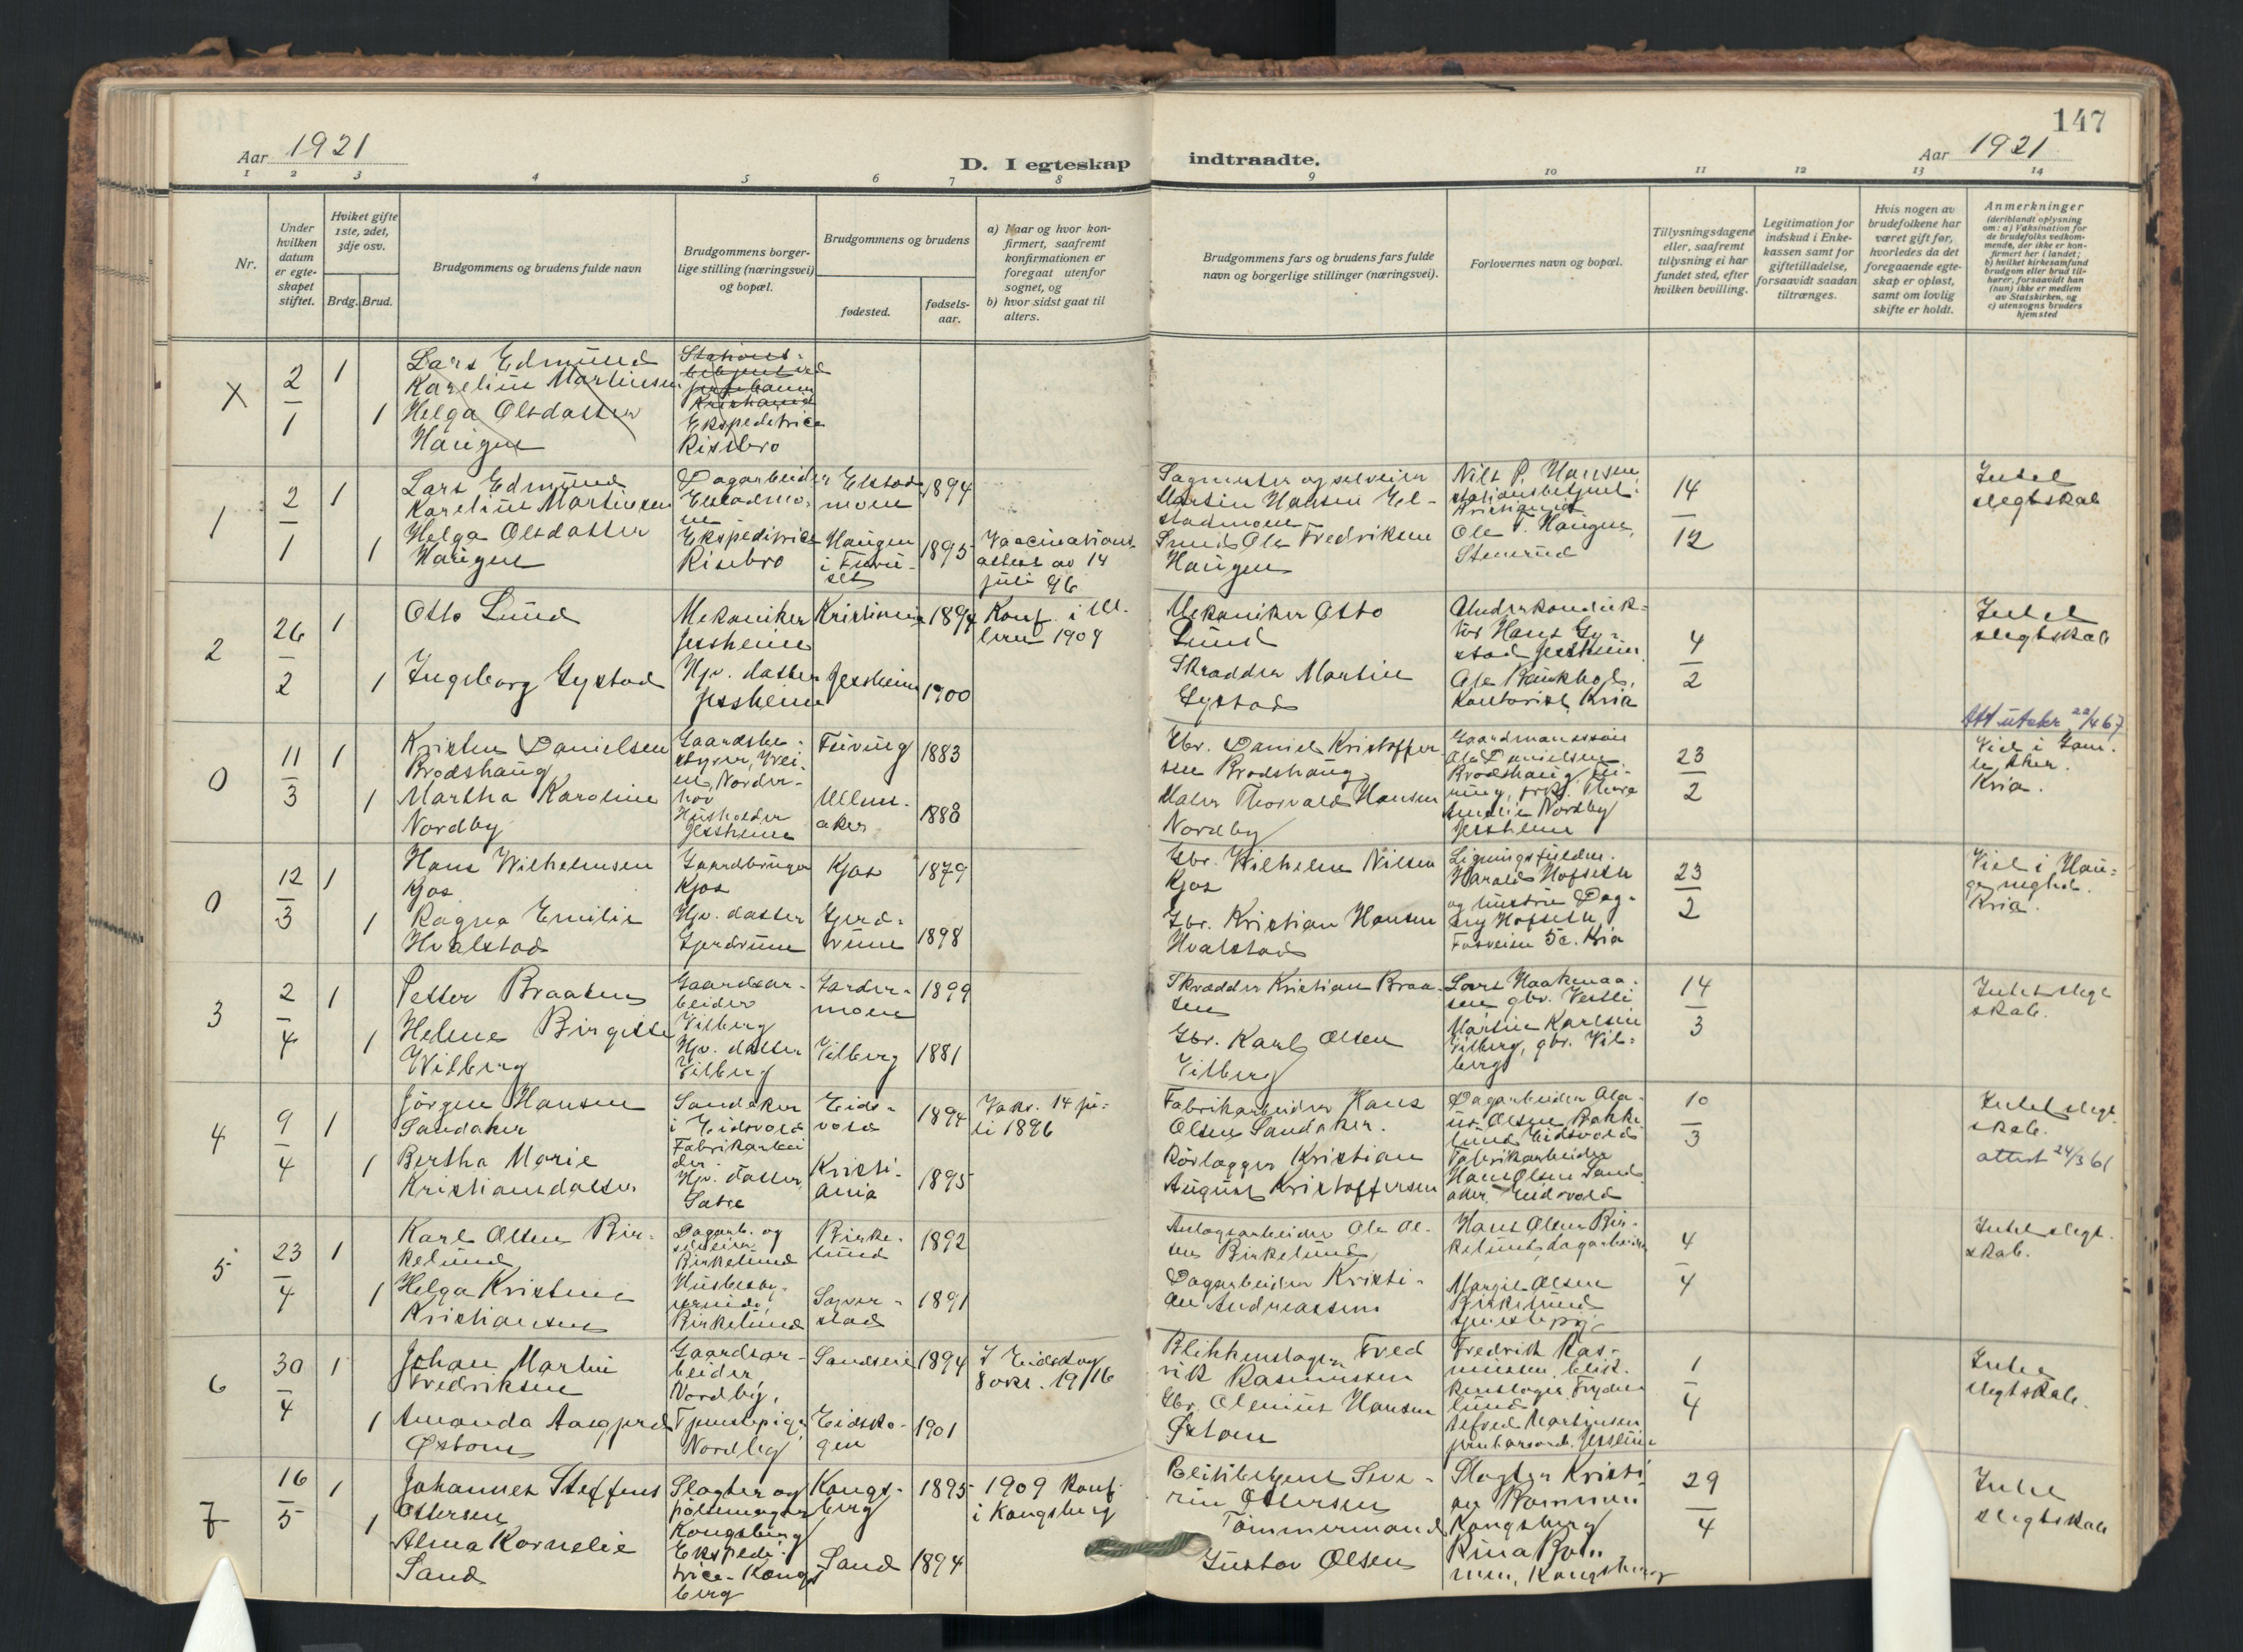 147
Aar 1921
D. I egteskap indtraadte.
Aar 1921
1 2 3 4 5 6 7 8 9 10 11 12 13 14
Nr.
Under hvilken datum er egte-skapet stiftet.
Hviket gifte 1ste, 2det, 3dje osv.
Brdg. Brud.
Brudgommens og brudens fulde navn
Brudgommens borger-lige stilling (næringsvei) og bopæl.
Brudgommens og brudens
fødested.
fødsels-aar.
a) Naar og hvor kon-firmert, saafremt konfirmationen er foregaat utenfor sognet, og
b) hvor sidst gaat til alters.
Brudgommens fars og brudens fars fulde navn og borgerlige stillinger (næringsvei).
Forlovernes navn og bopæl.
Tillysningsdagene eller, saafremt tillysning ei har fundet sted, efter hvilken bevilling.
Legitimation for indskud i Enke-kassen samt for giftetilladelse, forsaavidt saadan tiltrænges.
Hvis nogen av brudefolkene har været gift før, hvorledes da det foregaaende egte-skap er opløst, samt om lovlig skifte er holdt.
Anmerkninger
(deriblandt oplysning om: a) Vaksination for de brudefolks vedkom-mende, der ikke er kon-firmert her i landet; b) hvilket kirkesamfund brudgom eller brud til-hører, forsaavidt han (hun) ikke er medlem av Statskirken, og c) utensogns bruders hjemsted
X 2/1 1
Lars Edmund
Karelius Martinsen
1 Helga Olsdatter
Haugen
Stations-
betjent ved
Ekspeditrice
Risebro
1 2/1 1
Lars Edmund
Karelius Martinsen
1 Helga Olsdatter
Haugen
Dagarbeider
Elstadmo-
en
Ekspeditrice
Risebro
Elstad
moen
1894
Haugen
i Furu-
set
1895
Vaccinations
attest av 14
juli 96
Sagmester og selveier
Martin Hansen El-
stadmoen
Smed Ole Fredriksen
Haugen
Nils P. Hansen
stationsbetjent
Kristiania
Ole F. Haugen,
Stenerud
14/12
Intet
slegtskab
2 26/2 1
Otto Lund
1 Ingeborg Gystad
Mekaniker
Jessheim
Hjv. datter
Jessheim
Kristiania 1894
Jessheim 1900
Konf. i Ul-
lern 1909
Mekaniker Otto
Lund
Skrædder Martin
Gystad
Hans Gy-
stad Jessheim
Kontorist, Kria
4/2
Intet
slegtskab
Att utskr 22/4 67
0 11/3 1
Kristen Danielsen
Brodshaug
1 Martha Karoline
Nordby
Gaardsbe-
styrer, Vei-
en, Norder-
hov
Husholder
Jessheim
Furving 1883
Ullens-
aker 1888
Gbr. Daniel Kristoffer-
sen Brodshaug
Maler Thorvald Hansen
Nordby
Gaardmandssøn
Ole Danielsen
Brodshaug
Amalie Nordby
Jessheim
23/2
Viel i Gam-
le Aker.
Kria.
0 12/3 1
Hans Wilhelmsen
Kjos
1 Ragna Emilie
Hvalstad
Gaardbruger
Kjos
Hjv. datter
Gjerdrum
Kjos 1879
Gjerd-
rum 1898
Gbr. Wilhelm Nilsen
Kjos
Gbr. Kristian Hansen
Hvalstad
Harald Hofseth
og hustru Dag-
ny Hofseth,
Fosveien 5c. Kria
23/2
Viel i Hau-
ges menighed.
Kria.
3 2/4 1
Petter Braaten
1 Helene Birgitte
Wilberg
Gaardsar-
beider
Vilberg
Hjv. datter
Vilberg
Garder-
moen 1899
Vilberg 1881
Skrædder Kristian Braa-
ten
Gbr. Karl Olsen
Vilberg
Lars Haakenaa-
sen gbr. Vestli
Martin Karlsen
Vilberg, gbr. Vil-
berg
14/3
Intet slegt
skab.
4 9/4 1
Jörgen Hansen
Sandaker
1 Bertha Marie
Kristiansdatter
Sandaker
i Eidsvold
Fabrikarbei
der.
Hjv. datter
Sætre
Eids-
vold 1894
Kristi-
ania 1895
Vaks. 14 ju-
li 1896
Fabrikarbeider Hans
Olsen Sandaker.
Rörlægger Kristian
August Kristoffersen
Dagarbeider Ola-
us Olsen Bakke
lund Eidsvold
Fabrikarbeider
Hans Olsen Sand
aker. Eidsvold
10/3
Intet slegt-
skab.
attest 24/3 61
5 23/4 1
Karl Olsen Bir-
kelund
1 Helga Kristine
Kristiansen
Dagarb. og
selveier
Birkelund
Husbesty-
rerinde
Birkelund
Birke-
lund 1892
Sogver-
stad 1891
Anlægsarbeider Ole Ol-
sen Birkelund
Dagarbeider Kristi-
an Andreassen
Hans Olsen Bir-
kelund, dagarbeider
Margit Olsen
Birkelund
tjenestepige
4/4
Intet slegt-
skab.
6 30/4 1
Johan Martin
Fredriksen
1 Amanda Aasgjerd
Østom
Gaardsar-
beider
Nordby,
Tjenestepige
Nordby
Sandsnei 1894
Eidsko-
gen 1901
I Eidskog
8 okt. 19/16
Blikkenslager Fred
rik Rasmussen
Gbr. Olenius Hansen
Østom
Fredrik Ras-
mussen, blik-
kenslager Fryden
lund
Alfred Martinsen
jernbanearb. Jessheim
1/4
Intet
slegtskab.
7 16/5 1
Johannes Steffens
Ottersen
1 Alma Kornelie
Sand
Slagter og
pølsemager
Kongsberg
Ekspedi-
trice. Kongs
berg
Kongs-
berg 1895
Sand 1894
1909 Konf.
i Kongsberg
Politibetjent Seve-
rin Ottersen
Tømmermand
Gustav Olsen
Slagter Kristi
an Bommen
Kongsberg
Rina Bom
men, Kongsberg
29/4
Intet
slegtskab